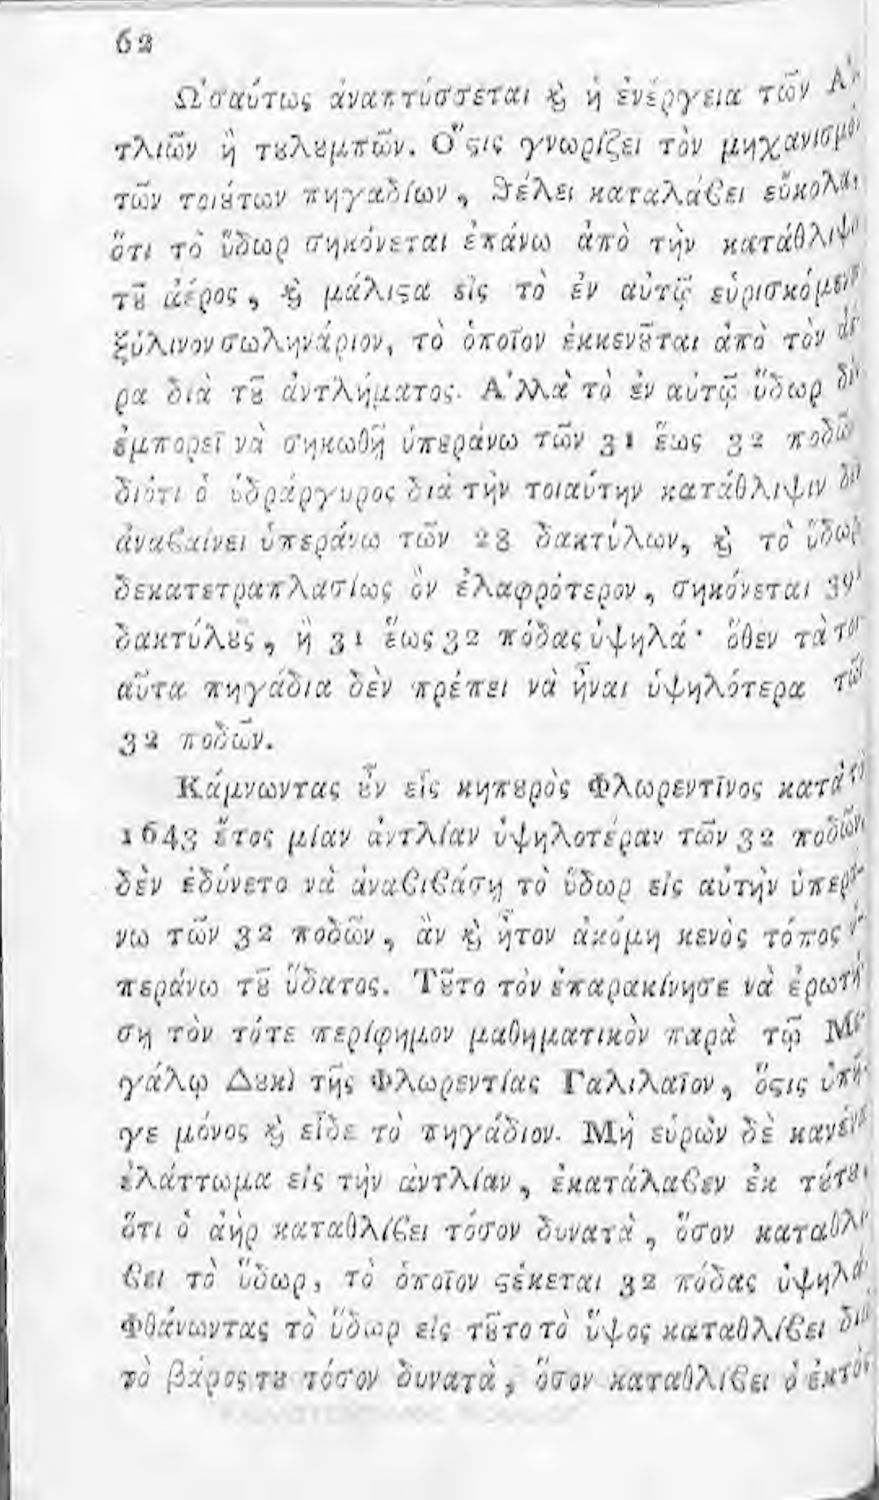 62
Ὡσαύτως ἀναπτύσσεται ϗ ἡ ἐνέργεια τῶν Ἀν-
τλιῶν ἢ τȣλȣμπῶν. Ὅϛις γνωρίζει τὸν μηχανισμὸν
τῶν τοιȣ́των πηγαδίων, ϑέλει καταλάϐει εὔκολα,
ὅτι τὸ ὕδωρ σηκόνεται ἐπάνω ἀπὸ τὴν κατάθλιψιν
τȣ͂ ἀέρος, ϗ μάλιϛα εἰς τὸ ἐν αὐτῷ εὑρισκόμενον
ξύλινον σωληνάριον, τὸ ὁποῖον ἐκκενȣ͂ται ἀπὸ τὸν ἀέ-
ρα διὰ τȣ͂ ἀντλήματος. Ἀλλὰ τὸ ἐν αὐτῷ ὕδωρ δὲν
ἐμπορεῖ νὰ σηκωθῇ ὑπεράνω τῶν 31 ἕως 32 ποδῶν
διότι ὁ ὑδράργυρος διὰ τὴν τοιαύτην κατάθλιψιν δὲν
ἀναϐαίνει ὑπεράνω τῶν 28 δακτύλων, ϗ τὸ ὕδωρ
δεκατετραπλασίως ὂν ἐλαφρότερον, σηκόνεται
δακτύλȣς, ἢ 31 ἕως 32 πόδας ὑψηλά· ὅθεν τὰ τοι-
αῦτα πηγάδια δὲν πρέπει νὰ ἦναι ὑψηλότερα τῶν
32 ποδῶν.
Κάμνωντας ȣ̓͂ν εἷς κηπȣρὸς Φλωρεντῖνος κατὰ τὸ
1643 ἔτος μίαν ἀντλίαν ὑψηλοτέραν τῶν 32 ποδῶν,
δὲν ἐδύνετο νὰ ἀναϐιϐάσῃ τὸ ὕδωρ εἰς αὐτὴν ὑπερά-
νω τῶν 32 ποδῶν, ἂν ϗ ἦτον ἀκόμη κενὸς τόπος ὑ-
περάνω τȣ͂ ὕδατος. Τȣ͂το τὸν ἐπαρακίνησε νὰ ἐρωτή-
σῃ τὸν τότε περίφημον μαθηματικὸν παρὰ τῷ Με-
γάλῳ Δȣκὶ τῆς Φλωρεντίας Γαλιλαῖον, ὅϛις ὑπῆ-
γε μόνος ϗ εἶδε τὸ πηγάδιον. Μὴ εὑρὼν δὲ κανένα
ἐλάττωμα εἰς τὴν ἀντλίαν, ἐκατάλαϐεν ἐκ τȣ́τȣ,
ὅτι ὁ ἀὴρ καταθλίϐει τόσον δυνατὰ, ὅσον καταθλί-
ϐει τὸ ὕδωρ, τὸ ὁποῖον ϛέκεται 32 πόδας ὑψηλά.
Φθάνωντας τὸ ὕδωρ εἰς τȣ͂το τὸ ὕψος καταθλίϐει διὰ
τὸ βάρος τȣ τόσον δυνατὰ, ὅσον καταθλίϐει ὁ ἐκτὸς